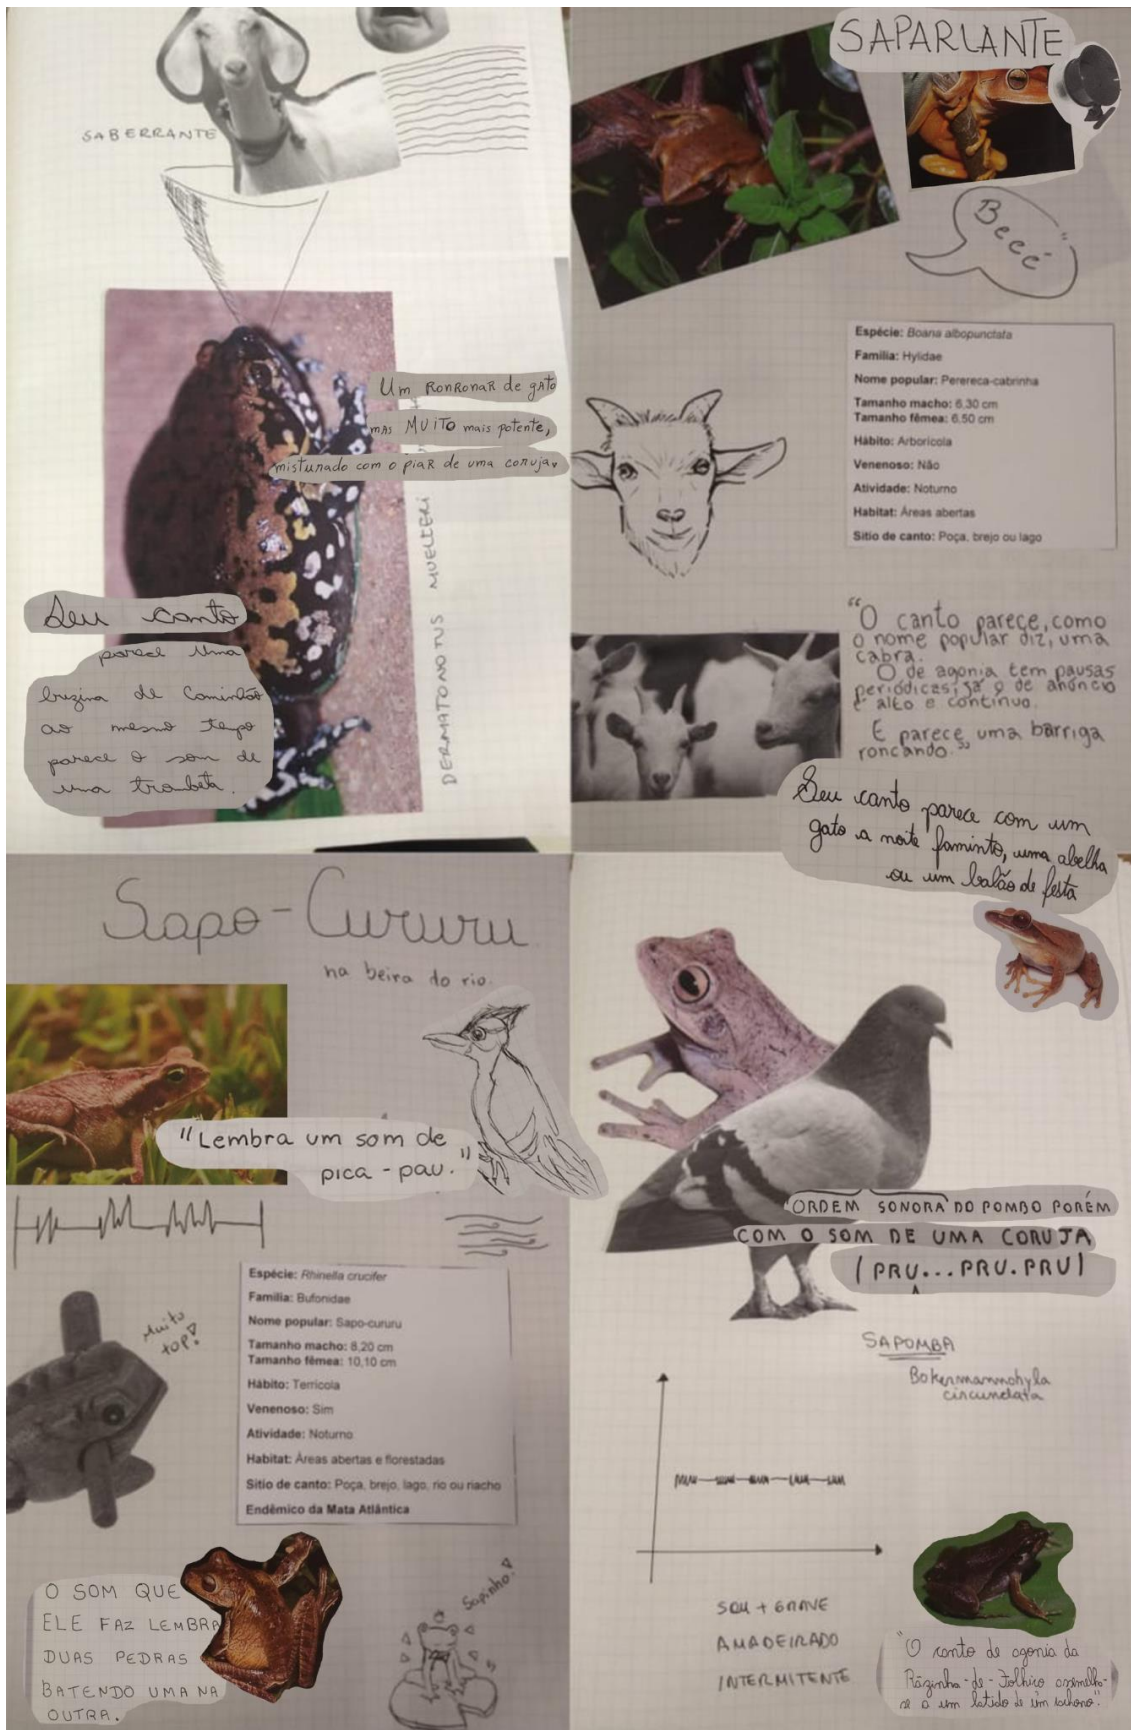 SABERRANTE
Um RONRONAR de gato
mas MUITO mais potente,
misturado com o piar de uma coruja.
DERMATONOTUS MUELLERI
Seu canto
parece uma
buzina de caminhão
ao mesmo tempo
parece o som de
uma trombeta.
SAPARLANTE
Beeé
Espécie: Boana albopunctata
Família: Hylidae
Nome popular: Perereca-cabrinha
Tamanho macho: 6,30 cm
Tamanho fêmea: 6,50 cm
Hábito: Arborícola
Venenoso: Não
Atividade: Noturno
Habitat: Áreas abertas
Sítio de canto: Poça, brejo ou lago
"O canto parece, como
o nome popular diz, uma
cabra.
O de agonia tem pausas
periódicas; já o de anúncio
é alto e contínuo.
E parece uma barriga
roncando."
Seu canto parece com um
gato a noite faminto, uma abelha
ou um balão de festa
Sapo-Cururu
na beira do rio.
"Lembra um som de
pica-pau."
Muito
top!
Espécie: Rhinella crucifer
Família: Bufonidae
Nome popular: Sapo-cururu
Tamanho macho: 8,20 cm
Tamanho fêmea: 10,10 cm
Hábito: Terrícola
Venenoso: Sim
Atividade: Noturno
Habitat: Áreas abertas e florestadas
Sítio de canto: Poça, brejo, lago, rio ou riacho
Endêmico da Mata Atlântica
O SOM QUE
ELE FAZ LEMBRA
DUAS PEDRAS
BATENDO UMA NA
OUTRA.
Sapinho!
ORDEM SONORA DO POMBO PORÉM
COM O SOM DE UMA CORUJA
(PRU...PRU.PRU)
SAPOMBA
Bokermannohyla
circumdata
SOM + GRAVE
AMADEIRADO
INTERMITENTE
"O canto de agonia da
Rãzinha-de-Folhiço assemelha-
se a um latido de um cachorro".